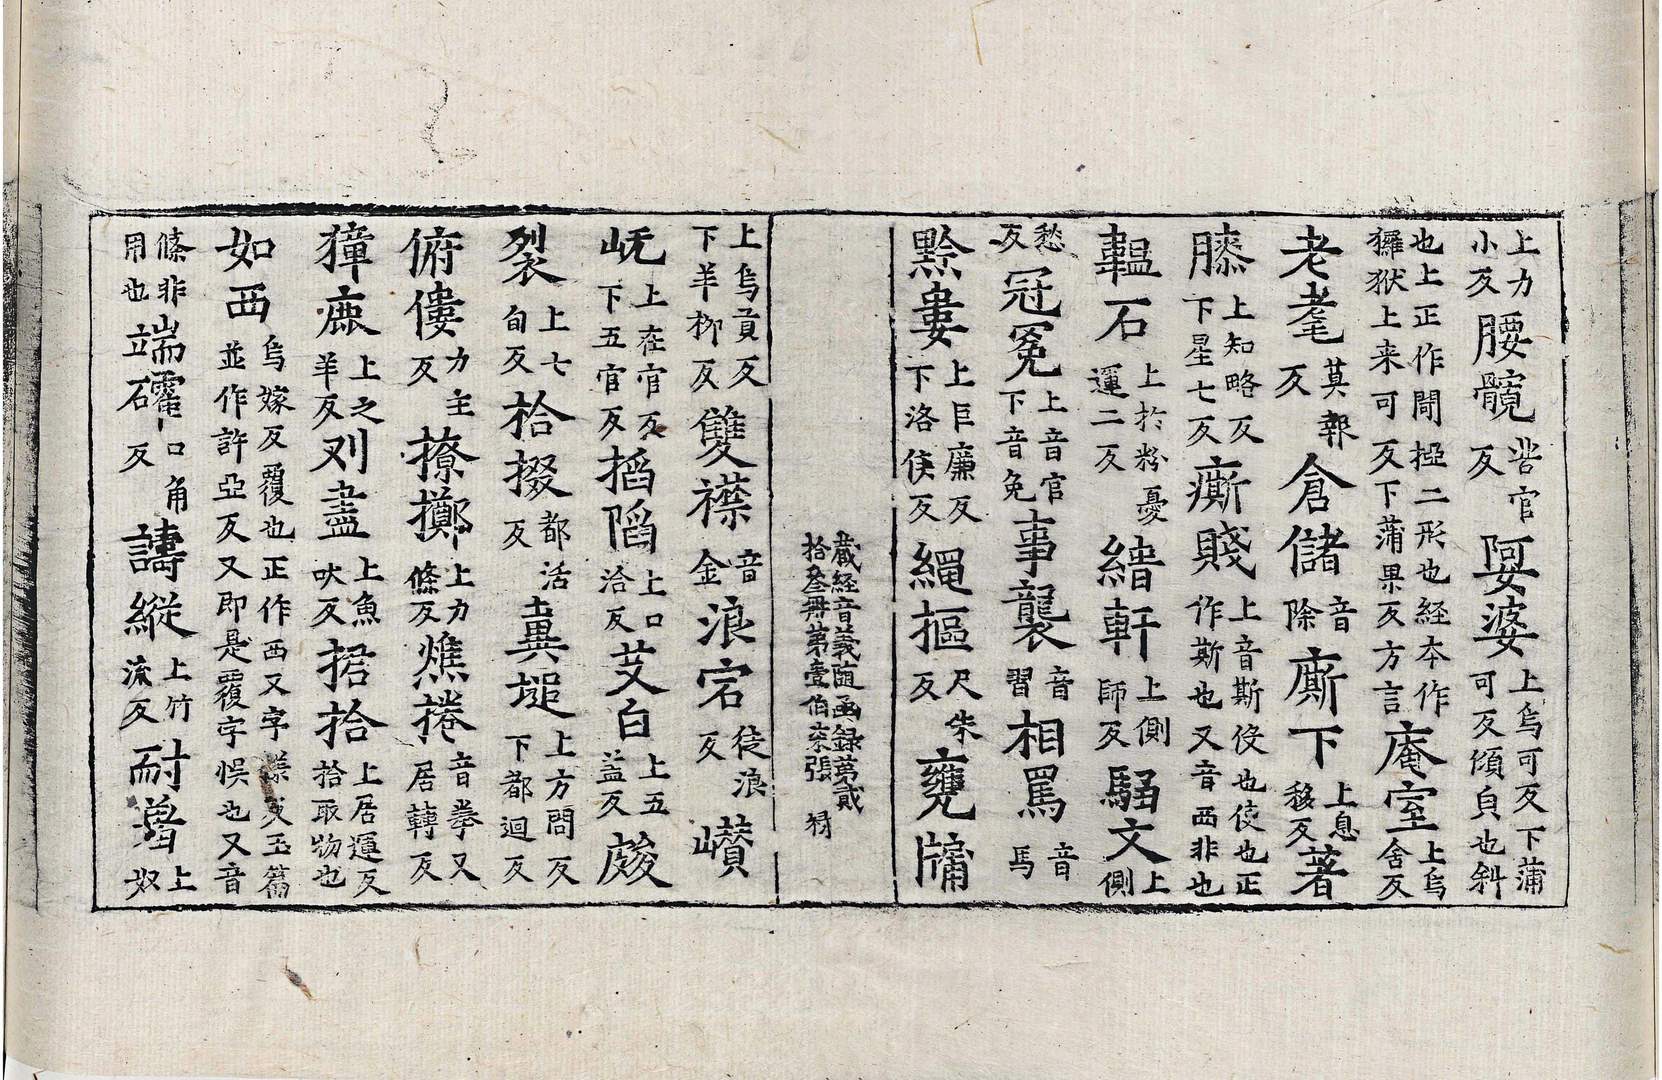 上力小反腰髖苦官反婐婆上烏可反下蒲可反傾皃也斜
也上正作閜椏二形也経本作玀㹢上来可反下蒲果反方言庵室上烏舍反
老耄莫報反倉儲音除廝下上息移反著
膝上知略反下星七反㾷賤上音斯伇也使也正作斯也又音西非也
韞石上扵粉反憂運二反繒軒上側師反騶文上側
愁反冠冕上音官下音免事襲音習相罵音馬
黔婁上巨廉反下洛侯反繩樞尺朱反甕牖
藏経音義随函録第貳拾叄冊第壹伯柒張
上烏貢反下羊柳反雙襟音金浪宕徒浪反巑
岏上在官反下五官反掐陷上口洽反艾白上五盖反皴
裂上七旬反拾掇都活反糞塠上方問反下都迴反
俯僂力主反撩擲上力條反燋捲音拳又居轉反
獐鹿上之羊反刈盡上魚吠反捃拾上居運反拾取物也
如襾烏嫁反覆也正作西又字㨾及玉篇並作許亞反又即是覆字悮也又音
條非用也端䃥口角反譸縱上竹流反耐著上奴